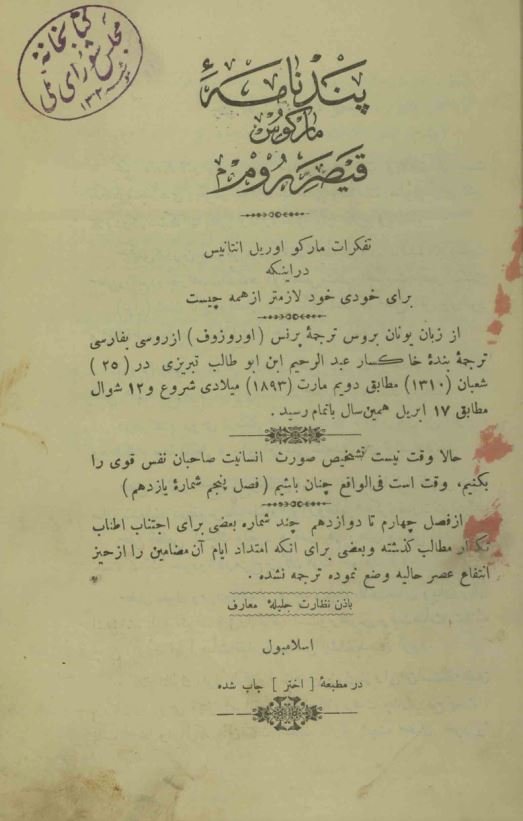 کتابخانهٔ
مجلس شورای ملی
۱۳۰۲
پندنامهٔ
مارکوس
قیصر روم
تفکرات مارکو اوریل انتانیس
دراینکه
برای خودی خود لازمتر ازهمه چیست
از زبان یونان بروس ترجمهٔ پرنس ( اوروزوف ) ازروسی بفارسی
ترجمهٔ بندهٔ خاکسار عبد الرحیم ابن ابو طالب تبریزی در ( ۲۵ )
شعبان (۱۳۱۰) مطابق دویم مارت (۱۸۹۳) میلادی شروع و۱۲ شوال
مطابق ۱۷ ابریل همین‌سال باتمام رسید .
حالا وقت نیست تشخیص صورت انسانیت صاحبان نفس قوی را
بکنیم، وقت است فی‌الواقع چنان باشیم ( فصل پنجم شمارهٔ یازدهم )
ازفصل چهارم تا دوازدهم چند شماره بعضی برای اجتناب اطناب
تکرار مطالب کذشته وبعضی برای انکه امتداد ایام آن مضامین را ازحیز
انتفاع عصر حالیه وضع نموده ترجمه نشده .
باذن نظارت جلیلهٔ معارف
اسلامبول
در مطبعهٔ [ اختر ] چاپ شده